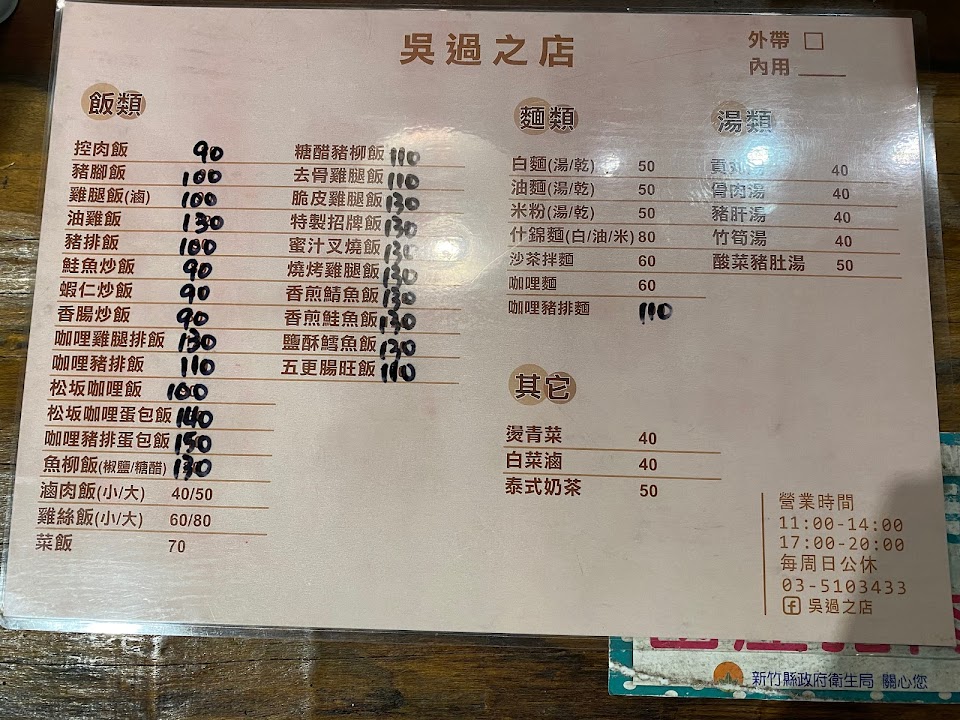 吳過之店
外帶 □
內用 ____
飯類
控肉飯 90
豬腳飯 100
雞腿飯(滷) 100
油雞飯 130
豬排飯 100
鮭魚炒飯 90
蝦仁炒飯 90
香腸炒飯 90
咖哩雞腿排飯 130
咖哩豬排飯 110
松坂咖哩飯 100
松坂咖哩蛋包飯 140
咖哩豬排蛋包飯 150
魚柳飯(椒鹽/糖醋) 130
滷肉飯(小/大) 40/50
雞絲飯(小/大) 60/80
菜飯 70
糖醋豬柳飯 110
去骨雞腿飯 110
脆皮雞腿飯 130
特製招牌飯 130
蜜汁叉燒飯
燒烤雞腿飯 130
香煎鯖魚飯 130
香煎鮭魚飯 130
鹽酥鱈魚飯 130
五更腸旺飯 110
麵類
白麵(湯/乾) 50
油麵(湯/乾) 50
米粉(湯/乾) 50
什錦麵(白/油/米) 80
沙茶拌麵 60
咖哩麵 60
咖哩豬排麵 110
其它
燙青菜 40
白菜滷 40
泰式奶茶 50
湯類
貢丸湯 40
骨肉湯 40
豬肝湯 40
竹筍湯 40
酸菜豬肚湯 50
營業時間
11:00-14:00
17:00-20:00
每周日公休
03-5103433
吳過之店
新竹縣政府衛生局 關心您